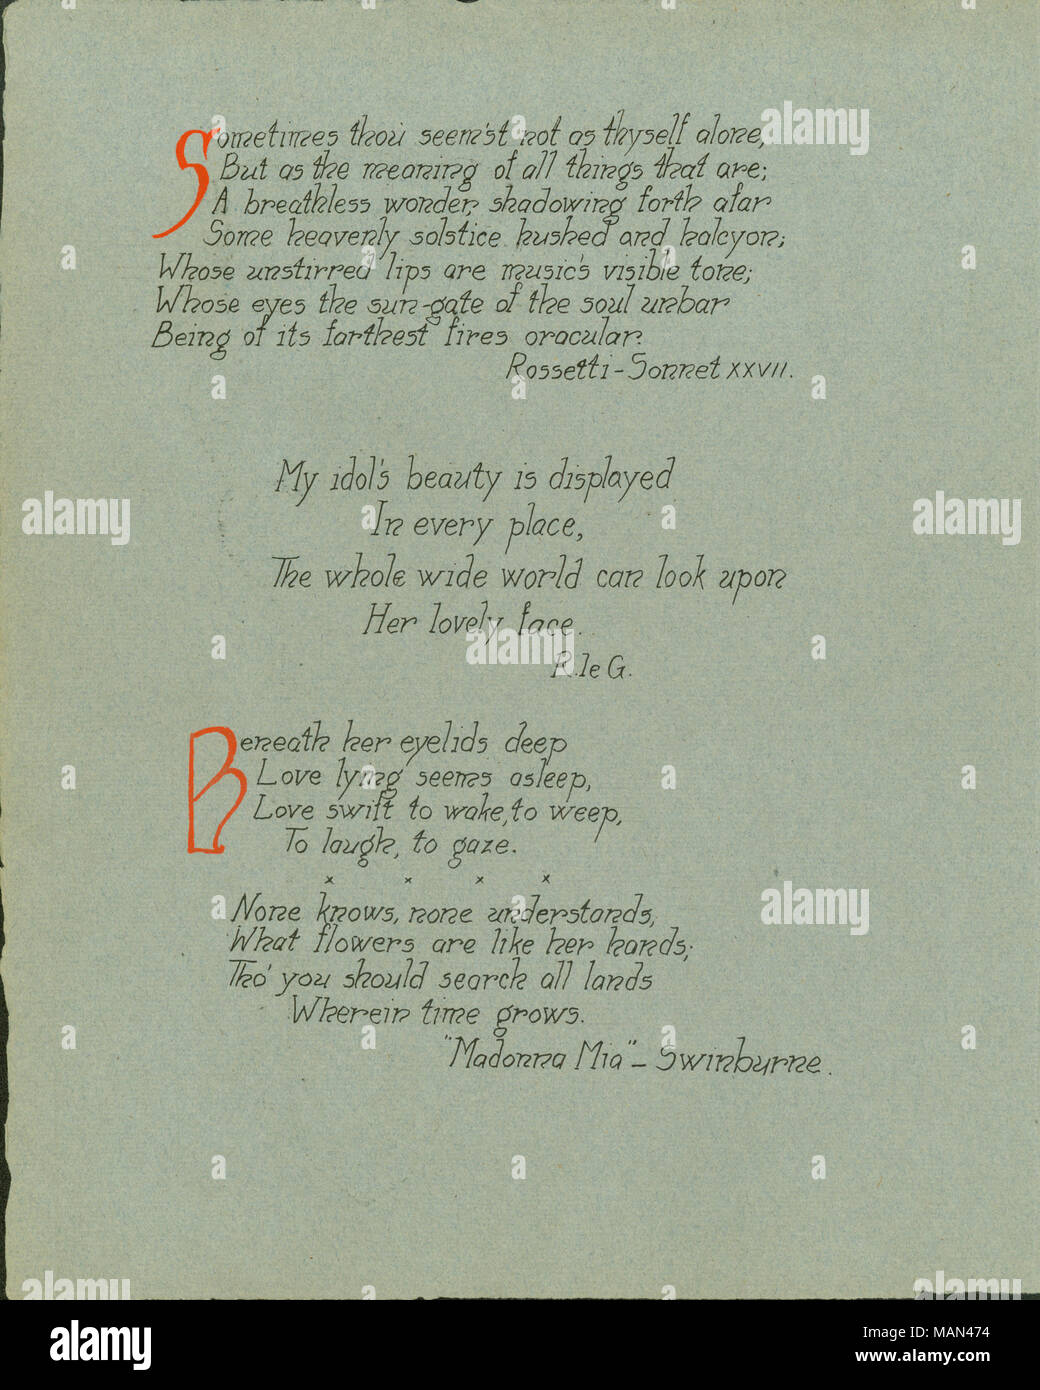 Sometimes thou seem'st not as thyself alone,
But as the meaning of all things that are;
A breathless wonder, shadowing forth afar
Some heavenly solstice hushed and halcyon;
Whose unstirred lips are music's visible tone;
Whose eyes the sun-gate of the soul unbar
Being of its farthest fires oracular.
Rossetti-Sonnet XXVII.
My idol's beauty is displayed
In every place,
The whole wide world can look upon
Her lovely face.
R. le G.
Beneath her eyelids deep
Love lying seems asleep,
Love swift to wake, to weep,
To laugh, to gaze.
x x x x
None knows, none understands,
What flowers are like her hands;
Tho' you should search all lands
Wherein time grows.
"Madonna Mia" - Swinburne.
alamy
Image ID: MAN474
www.alamy.com